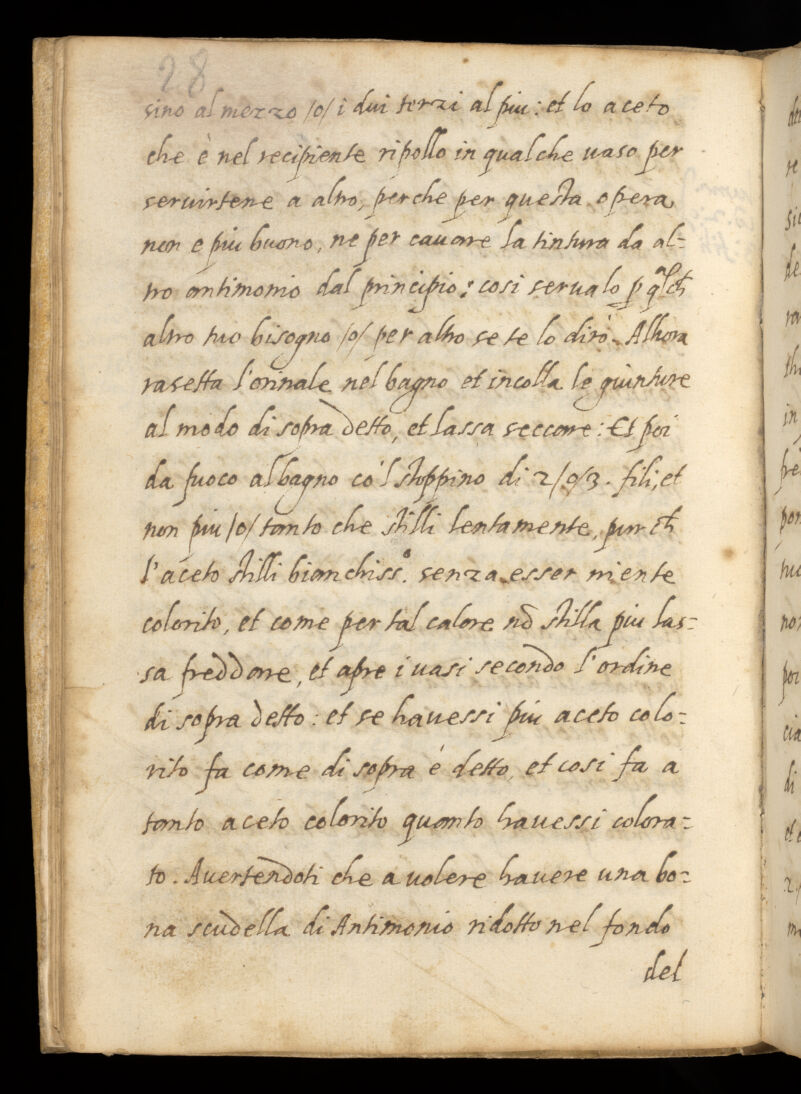 28
sino al mezzo /o/ i dui terzi al piu: et lo aceto
che è nel recipiente ripollo in qualche uaso per
seruirtene a altro, perche per questa opera
non e piu buono, ne per cauare la tintura da al=
tro antimonio dal principio: cosi serualo p qlch
altro tuo bisogno /o/ per altro se te lo dirò. Alhora
rasetta l'orinale nel bagno et incolla le giunture
al modo di sopra detto, et lassa seccare: Et poi
da fuoco al bagno co'l stoppino di 2/o/3. fili, et
non piu /o/ tanto che stilli lentamente, pur ch
l'aceto stilli bianchiss.º senza esser niente
colorito, et come per tal calore nō stilla piu las=
sa freddare, et apre i uasi secondo l'ordine
di sopra detto: et se hauessi piu aceto colo=
rito fa come di sopra è detto, et cosi fa a
tanto aceto colorito quanto hauessi colora=
to. Auertendoti che a uolere hauere una bo=
na scudella di Antimonio ridotto nel fondo
del